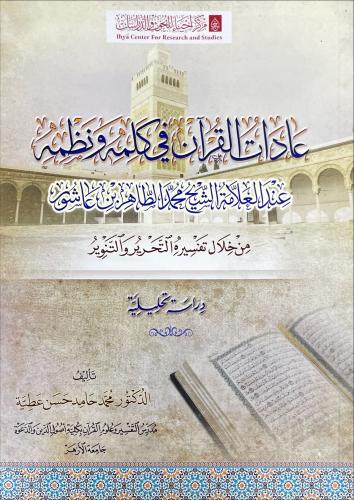 مركز إحياء للبحوث والدراسات
Ihyā Center For Research and Studies
عَادَاتُ القُرْآنِ فِي كَلِمِهِ وَنَظْمِهِ
عِنْدَ العَلَّامَةِ الشَّيْخِ مُحَمَّدِ الطَّاهِرِ بْنِ عَاشُور
مِنْ خِلَالِ تَفْسِيرِهِ التَّحْرِيرِ وَالتَّنْوِيرِ
دِرَاسَةٌ تَحْلِيلِيَّةٌ
تَأْلِيفُ
الدكتور محمد حامد حسن عطية
مدرس التفسير وعلوم القرآن بكلية أصول الدين والدعوة
جامعة الأزهر